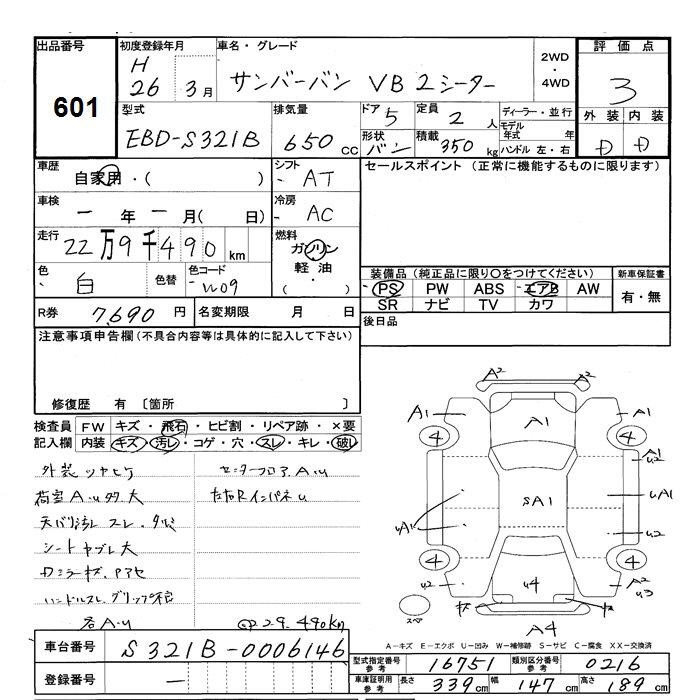 出品番号
601
初度登録年月
H
26 3月
車名・グレード
サンバーバン VB 2シーター
2WD
・
4WD
評価点
3
型式
EBD-S321B
排気量
650 cc
ドア 5
形状 バン
定員 2 人
積載 350 kg
ディーラー・並行
モデル年式 年
ハンドル 左・右
外装 内装
D D
車歴
自家用・( )
シフト
AT
車検
― 年 ― 月( 日)
冷房
AC
走行
22万9千490 km
燃料
ガソリン
軽油
・( )
色
白
色替
色コード
W09
R券 7,690 円
名変期限 月 日
セールスポイント (正常に機能するものに限ります)
装備品 (純正品に限り○をつけてください)
PS PW ABS エアB AW
SR ナビ TV カワ
新車保証書
有・無
後日品
注意事項申告欄(不具合内容等は具体的に記入して下さい)
修復歴 有 〔箇所 〕
検査員記入欄
FW キズ・飛石・ヒビ割・リペア跡・×要
内装 キズ・汚レ・コゲ・穴・スレ・キレ・破レ
外装ツヤヒケ
センターフロア A.u
荷室A.u多大
天バリ汚レ スレ・タルミ
シートヤブレ大
各A.u
@29.490km
A² A²
A1 A1 A1
4 4
A1
u2
SA1
uA1
uA1
u2
4 4
u2 u4 A²
u3
A4
スペア
A-キズ E-エクボ U-凹み W-補修跡 S-サビ C-腐食 XX-交換済
車台番号 S321B-0006146
登録番号 ―
型式指定番号 参考 16751
類別区分番号 参考 0216
車庫証明用 参考 長さ 339cm 幅 147cm 高さ 189cm